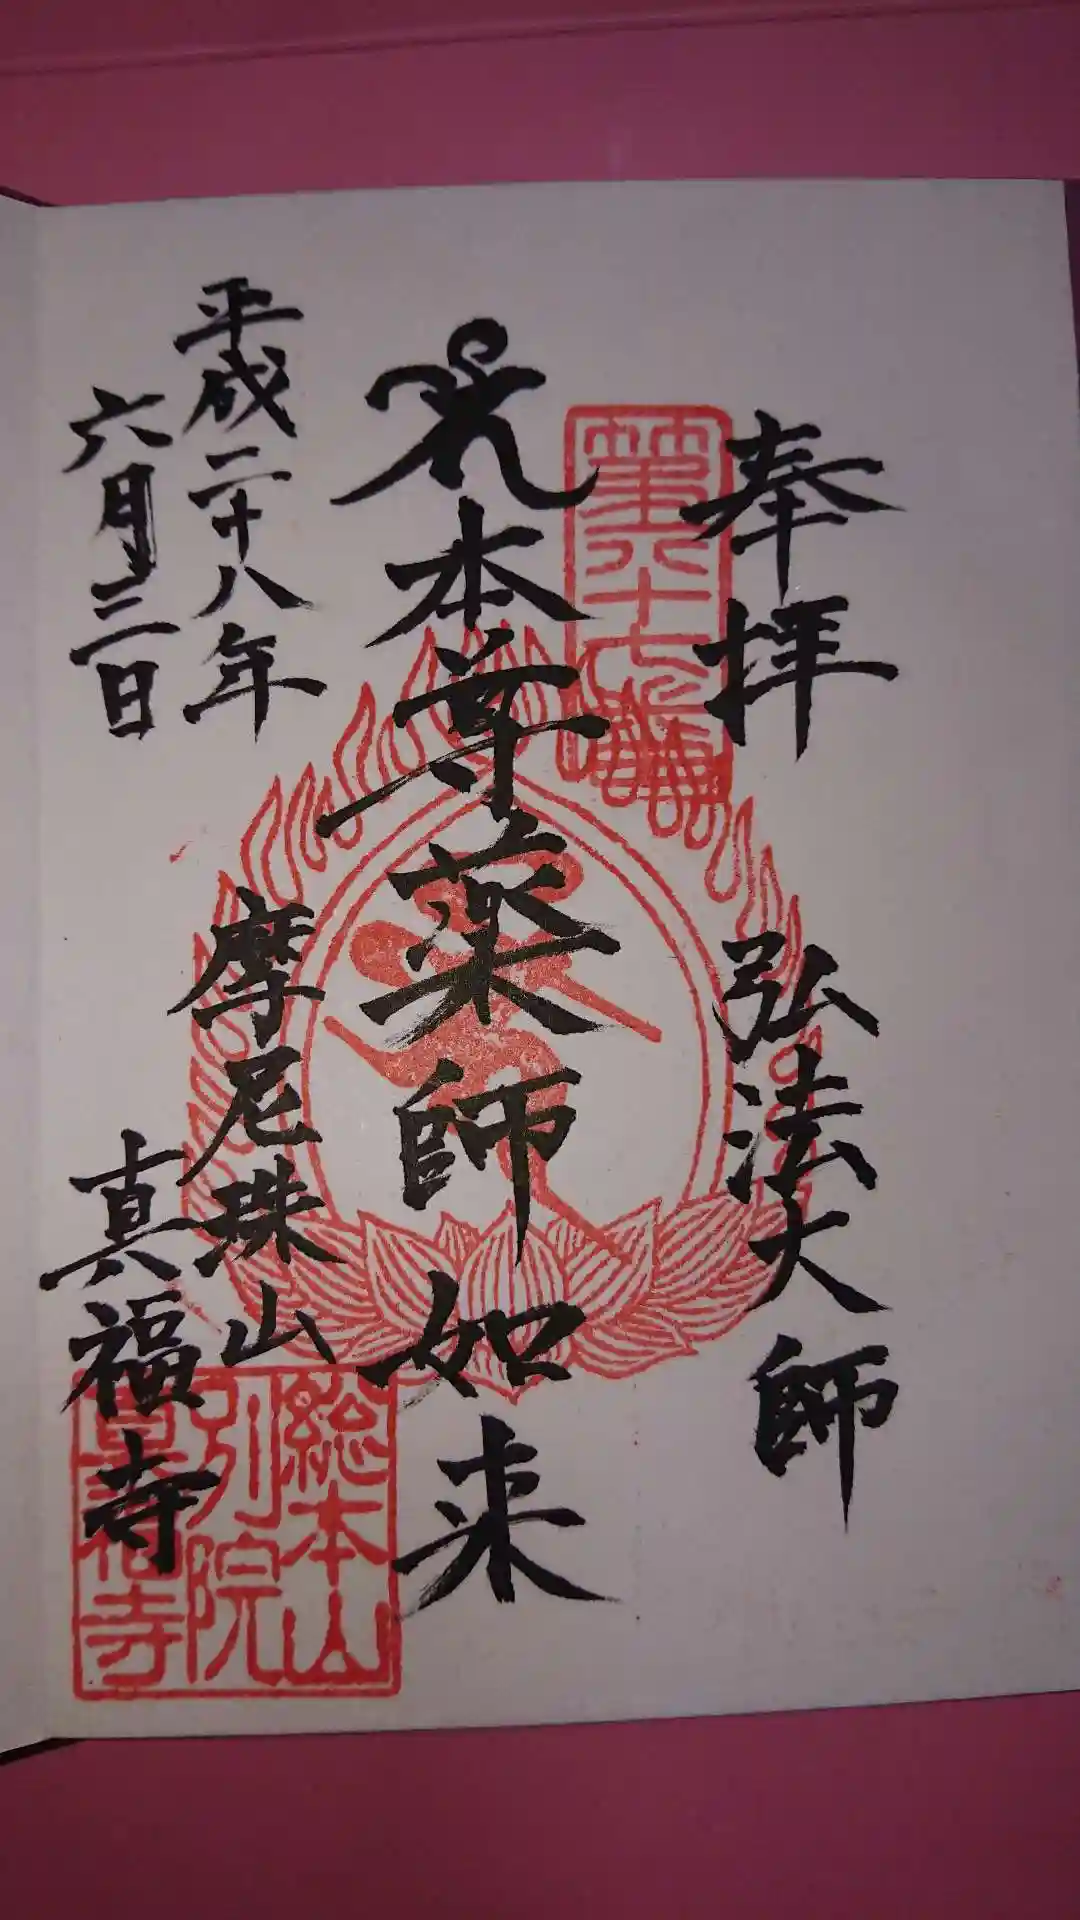 奉拝
弘法大師
第六十七番
本尊薬師如来
平成二十八年
六月三日
摩尼珠山
真福寺
総本山
別院
真福寺